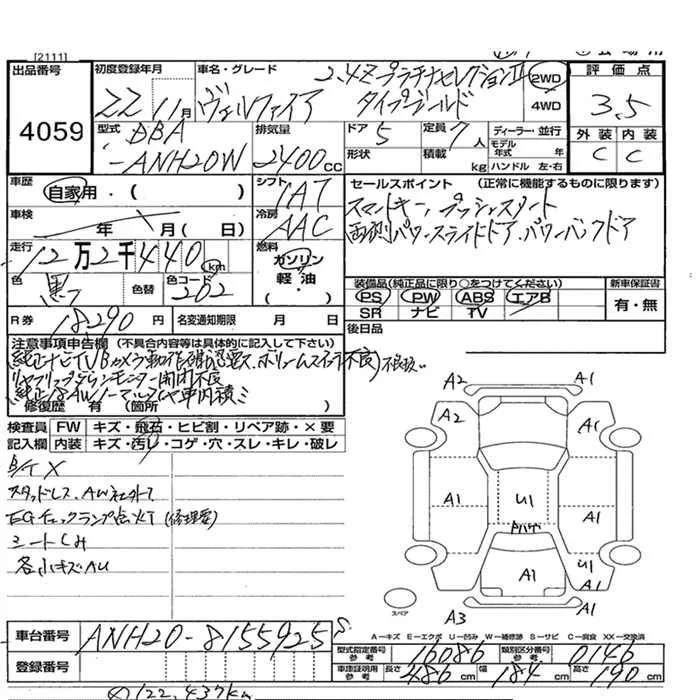 [2111]
出品番号
4059
初度登録年月
22 11月
車名・グレード
ヴェルファイア
2.4Zプラチナセレクション II
タイプゴールド
2WD
4WD
評価点
3.5
外装 内装
C C
型式
DBA
-ANH20W
排気量
2400cc
ドア 5
形状
定員 7人
積載 kg
ディーラー・並行
モデル年式 年
ハンドル 左・右
車歴
自家用・( )
シフト
IAT
車検
年 月(日)
冷房
AAC
走行
12万2千440km
燃料
ガソリン
軽油・
色
黒
色替
色コード
202
R券 18,290円
名変通知期限 月 日
セールスポイント (正常に機能するものに限ります)
スマートキー、プッシュスタート
両側パワースライドドア、パワーバックドア
装備品(純正品に限り○をつけてください)
PS PW ABS エアB
SR ナビ TV
新車保証書
有・無
後日品
注意事項申告欄 (不具合内容等は具体的に記入して下さい)
リヤフリップダウンモニター開閉不良
純正18AWノーマルタイヤ車内積
修復歴 有 (箇所 )
検査員記入欄
FW キズ・飛石・ヒビ割・リペア跡・×要
内装 キズ・汚レ・コゲ・穴・スレ・キレ・破レ
スタッドレス、AW社外
EGチェックランプ点灯(修理要)
シートしみ
各小キズAU
A2 A1
A2 A1
A1 U1 A1
A1 U1 A1
A3 A1
スペア
A－キズ E－エクボ U－凹み W－補修跡 S－サビ C－腐食 XX－交換済
車台番号
ANH20-8155925
登録番号
型式指定番号 参考 16086
類別区分番号 参考 0146
車庫証明用 参考 長さ 486cm 幅 184cm 高さ 190cm
122,437km